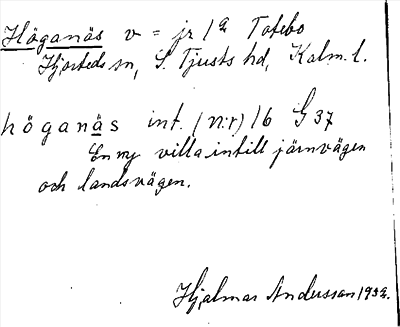 Höganäs v = jr 1a Totebo
Hjorteds sn, S. Tjusts hd, Kalm. l.
höganäs int. (n:r) 16 G 37
En ny villa intill järnvägen
och landsvägen.
Hjalmar Andersson 1932.